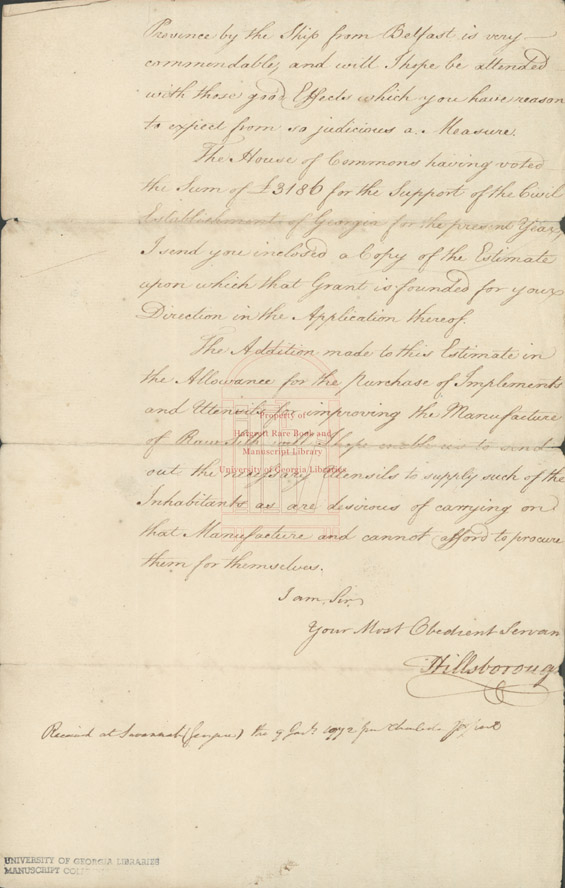 Province by the Ship from Belfast is very
commendable, and will I hope be attended
with those good Effects which you have reason
to expect from so judicious a Measure.
The House of Commons having voted
the Sum of £3186 for the Support of the Civil
Establishments of Georgia for the present Year,
I send you inclosed a Copy of the Estimate
upon which that Grant is founded for your
Direction in the Application thereof.
The Addition made to this Estimate in
the Allowance for the purchase of Implements
and Utensils for improving the Manufacture
of Raw Silk will I hope enable us to send
out the necessary Utensils to supply such of the
Inhabitants as are desirous of carrying on
that Manufacture and cannot afford to procure
them for themselves.
I am Sir,
Your Most Obedient Servan
Hillsboroug
Received at Savannah (Georgia) the 9
Property of
Hargrett Rare Book and
Manuscript Library
University of Georgia Libraries
UNIVERSITY OF GEORGIA LIBRARIES
MANUSCRIPT